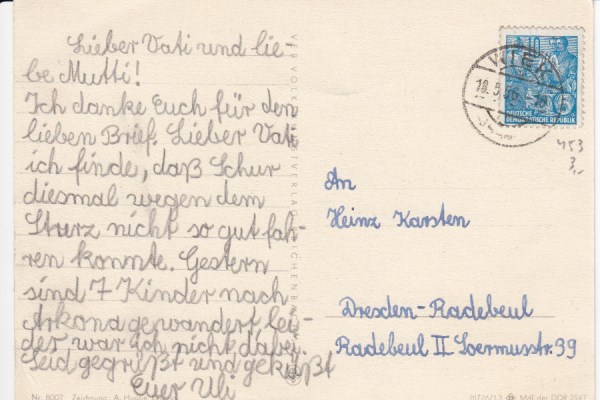 Lieber Vati und lie-
be Mutti!
Ich danke Euch für den
lieben Brief. Lieber Vati
ich finde, daß Schur
diesmal wegen dem
Sturz nicht so gut fah-
ren konnte. Gestern
sind 7 Kinder nach
Arkona gewandert lei-
der war ich nicht dabei.
Seid gegrüßt und geküßt
Euer Uli
An
Heinz Karsten
Dresden-Radebeul
Radebeul II Loermusstr. 39
WIEK
DEUTSCHE
DEMOKRATISCHE REPUBLIK
5
453
3,-
Nr. 8007 Zeichnung: A.